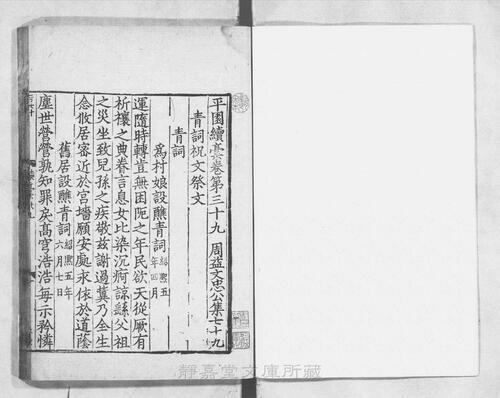 平園續藁卷第三十九 周益文忠公集七十九
青詞祝文祭文
青詞
爲村娘設醮青詞 紹熙五年四月
運隨時轉豈無困阨之年民欲天從厥有
祈禳之典眷言息女比染沉痾諒緣父祖
之災坐致兒孫之疾敬茲謝過冀乃全生
念攸居密近於宮墻願安處永依於道蔭
舊居設醮青詞 紹熙五年六月七日
塵世營營孰知罪戾高穹浩浩每示矜憐
靜嘉堂文庫所藏